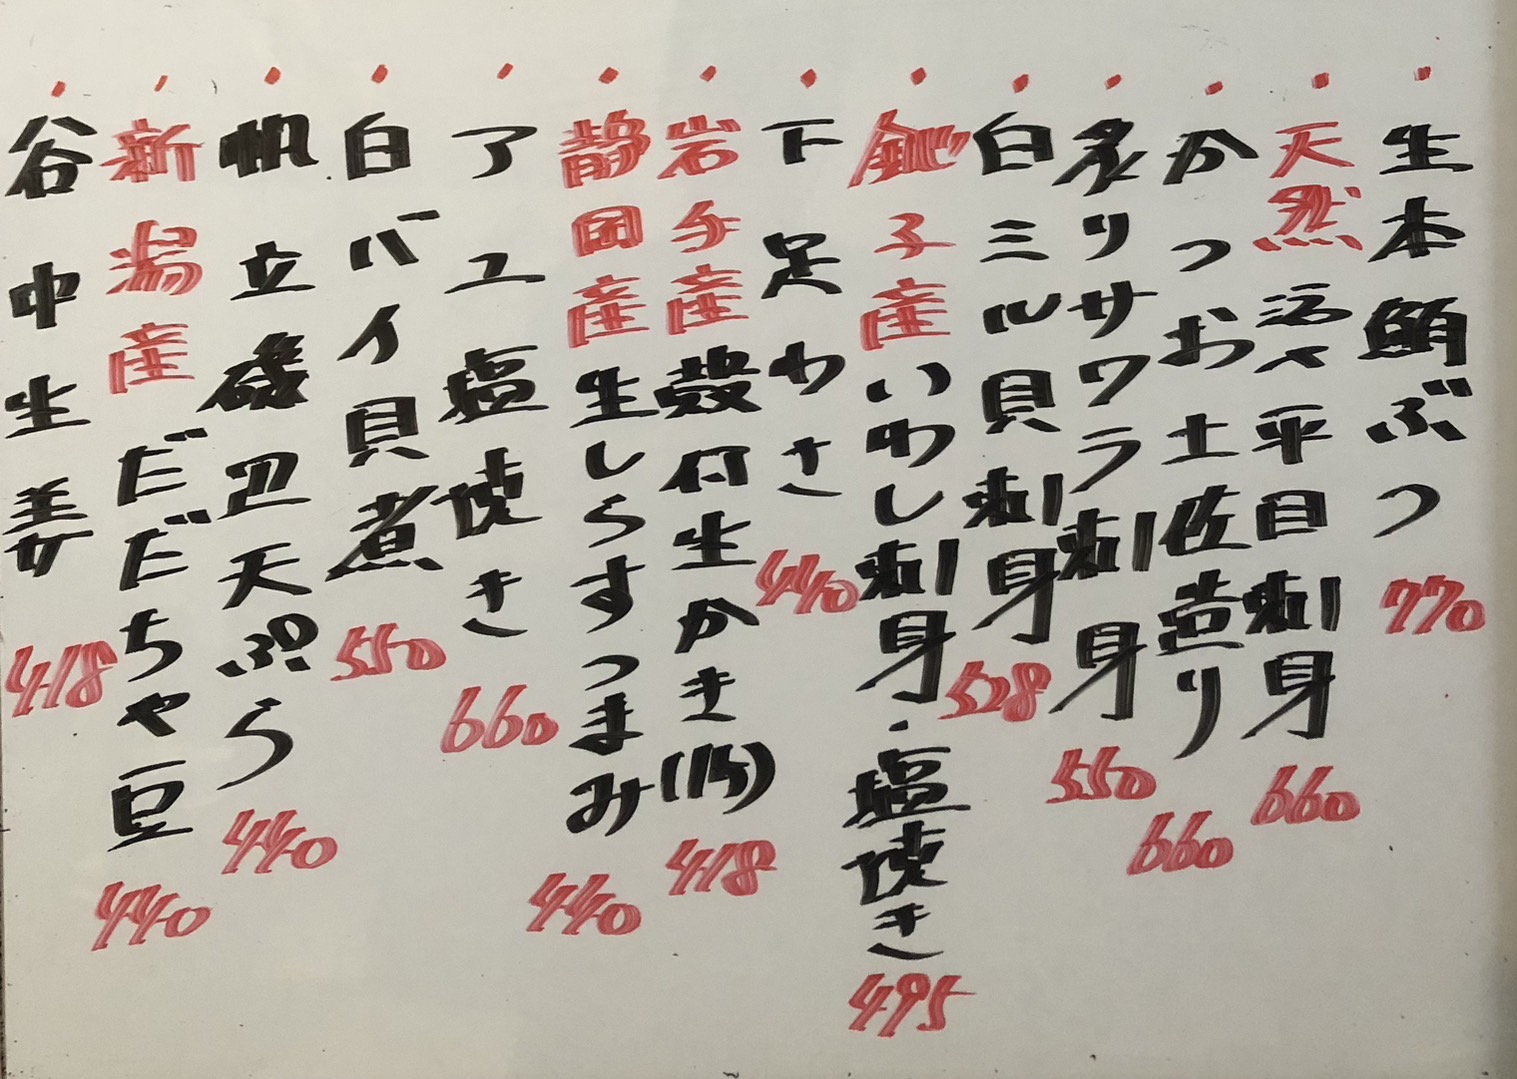 生本鮪ぶつ 770
天然活〆平目刺身 660
かつお土佐造り 660
炙りサワラ刺身 550
白ミル貝刺身 528
銚子産いわし刺身・塩焼き 495
下足わさ 440
岩手産殻付生かき(1ケ) 418
静岡産生しらすつまみ 440
アユ塩焼き 660
白バイ貝煮 550
帆立磯辺天ぷら 440
新潟産だだちゃ豆 440
谷中生姜 418